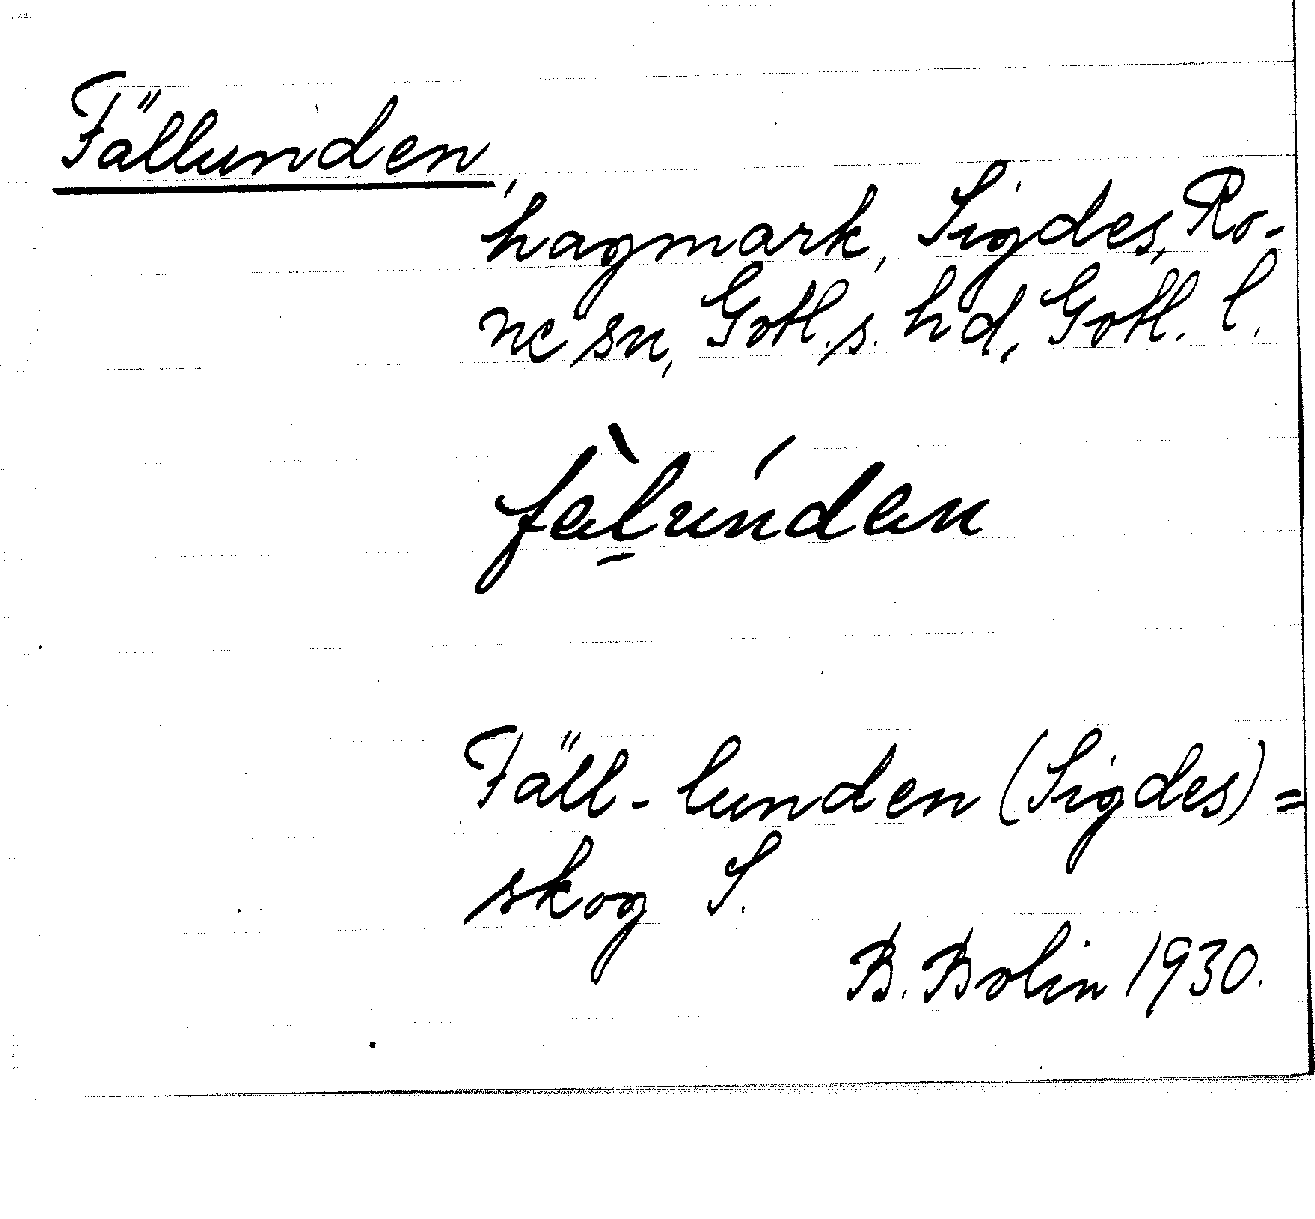 Fällunden,
hagmark, Sigdes, Ro-
ne sn, Gotl. s. hd, Gotl. l.
fel̠ùnden
Fäll-lunden (Sigdes) =
skog S.
B. Bolin 1930.